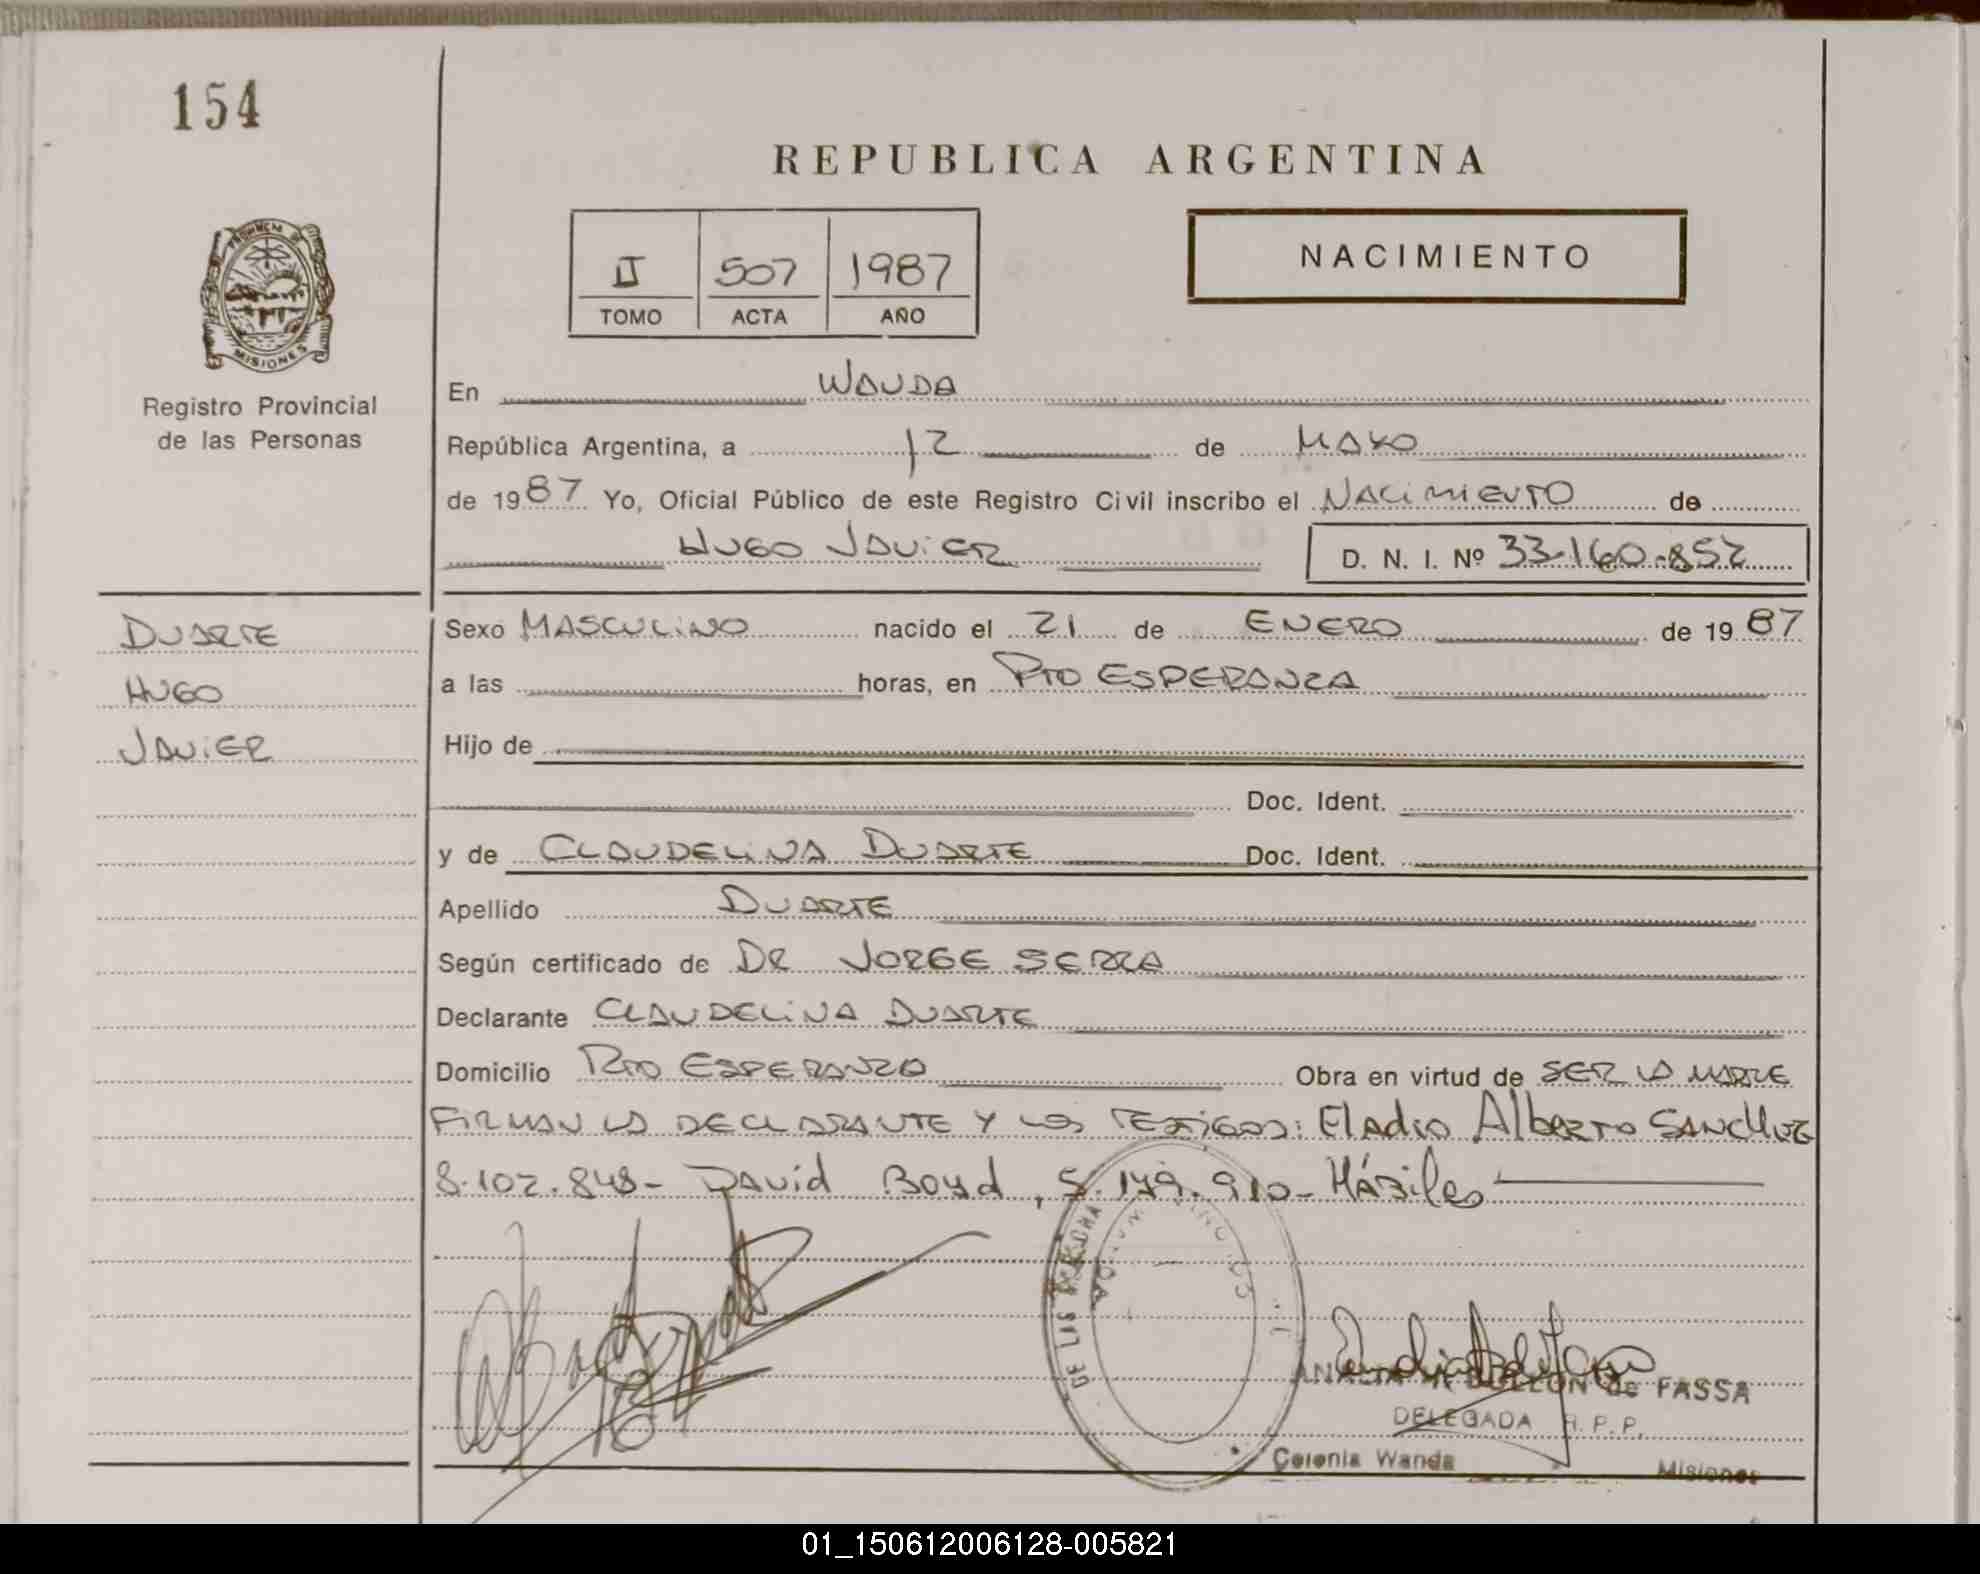 154
REPUBLICA ARGENTINA
PROVINCIA DE
MISIONES
Registro Provincial
de las Personas
II 507 1987
TOMO ACTA AÑO
NACIMIENTO
En WANDA
República Argentina, a 12 de MAYO
de 1987 Yo, Oficial Público de este Registro Civil inscribo el NACIMIENTO de
HUGO JAVIER D. N. I. Nº 33.160.852
DUARTE
HUGO
JAVIER
Sexo MASCULINO nacido el 21 de ENERO de 1987
a las horas, en PTO ESPERANZA
Hijo de
Doc. Ident.
y de CLAUDELINA DUARTE Doc. Ident.
Apellido DUARTE
Según certificado de DR JORGE SERRA
Declarante CLAUDELINA DUARTE
Domicilio PTO ESPERANZA Obra en virtud de SER LA MADRE
FIRMAN LA DECLARANTE Y LOS TESTIGOS: Eladio Alberto SANCHEZ
8.102.848- David Boyd, 5.179.910- Hábiles
DE LAS
de FASSA
DELEGADA R. P. P.
Colonia Wanda Misiones
01_150612006128-005821